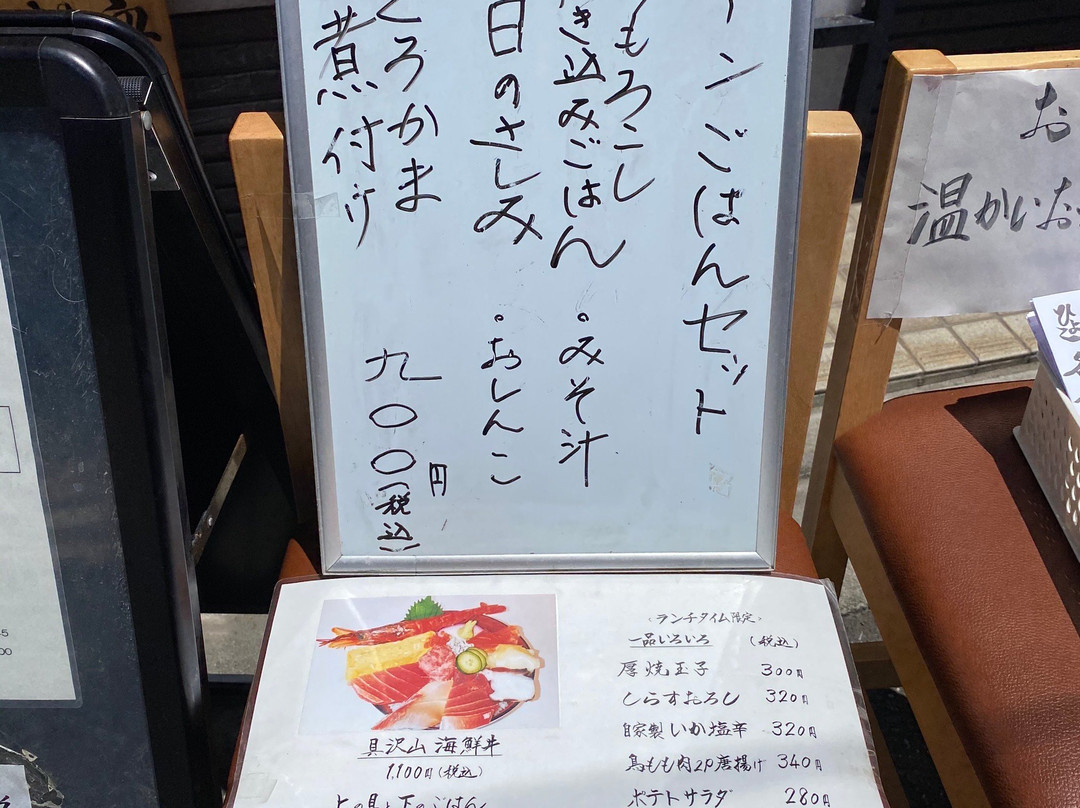 ーンごはんセット
もろこし
き込みごはん ・みそ汁
日のさしみ ・おしんこ
とろかま
煮付け
九〇〇円(税込)
お
温かいお
ひ
具沢山 海鮮丼
1,100円(税込)
上の具と下のごはん
〈ランチタイム限定〉
一品いろいろ (税込)
厚焼玉子 300円
しらすおろし 320円
自家製いか塩辛 320円
鳥もも肉2P唐揚げ 340円
ポテトサラダ 280円